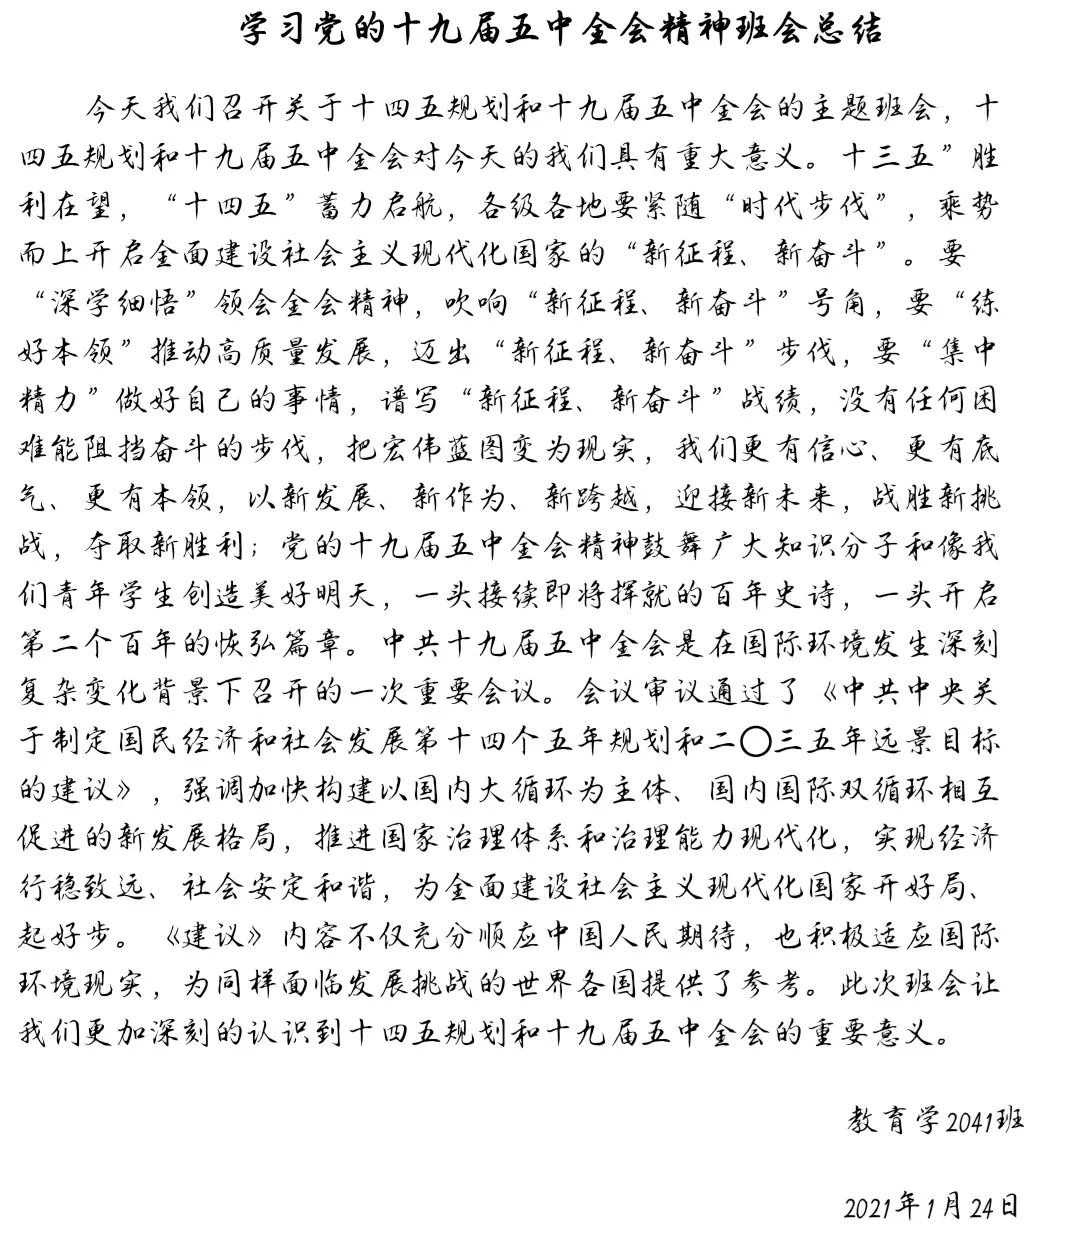 学习党的十九届五中全会精神班会总结
今天我们召开关于十四五规划和十九届五中全会的主题班会，十
四五规划和十九届五中全会对今天的我们具有重大意义。十三五”胜
利在望，“十四五”蓄力启航，各级各地要紧随“时代步伐”，乘势
而上开启全面建设社会主义现代化国家的“新征程、新奋斗”。要
“深学细悟”领会全会精神，吹响“新征程、新奋斗”号角，要“练
好本领”推动高质量发展，迈出“新征程、新奋斗”步伐，要“集中
精力”做好自己的事情，谱写“新征程、新奋斗”战绩，没有任何困
难能阻挡奋斗的步伐，把宏伟蓝图变为现实，我们更有信心、更有底
气、更有本领，以新发展、新作为、新跨越，迎接新未来，战胜新挑
战，夺取新胜利；党的十九届五中全会精神鼓舞广大知识分子和像我
们青年学生创造美好明天，一头接续即将挥就的百年史诗，一头开启
第二个百年的恢弘篇章。中共十九届五中全会是在国际环境发生深刻
复杂变化背景下召开的一次重要会议。会议审议通过了《中共中央关
于制定国民经济和社会发展第十四个五年规划和二〇三五年远景目标
的建议》，强调加快构建以国内大循环为主体、国内国际双循环相互
促进的新发展格局，推进国家治理体系和治理能力现代化，实现经济
行稳致远、社会安定和谐，为全面建设社会主义现代化国家开好局、
起好步。《建议》内容不仅充分顺应中国人民期待，也积极适应国际
环境现实，为同样面临发展挑战的世界各国提供了参考。此次班会让
我们更加深刻的认识到十四五规划和十九届五中全会的重要意义。
教育学2041班
2021年1月24日